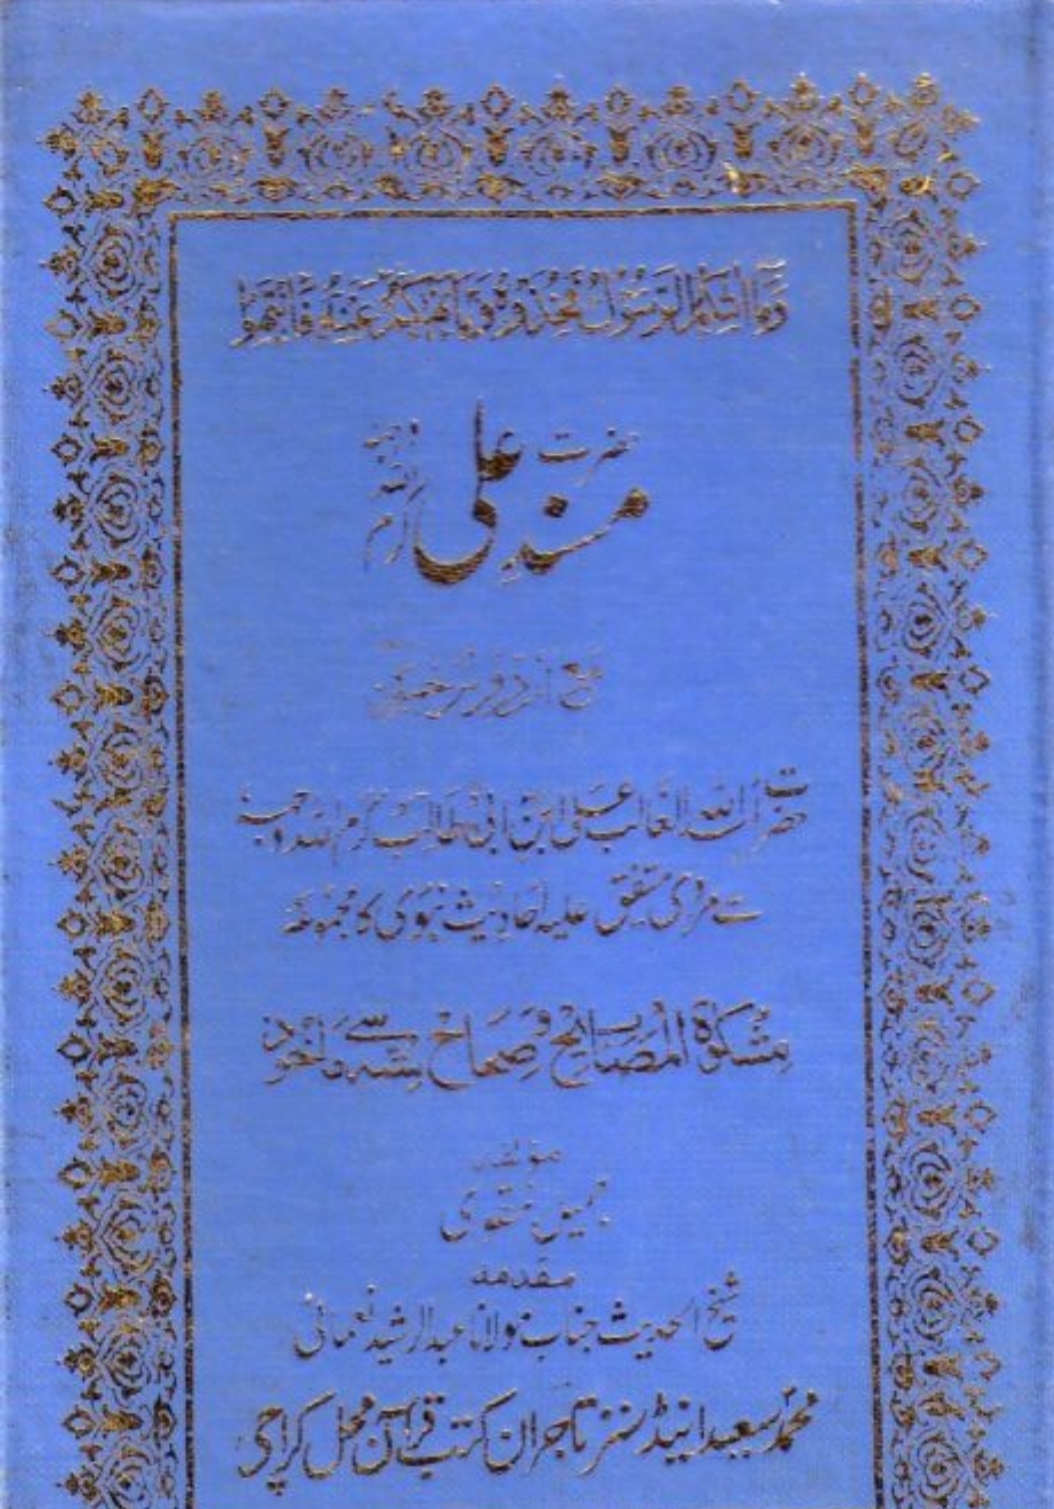 وَمَا آتٰىكُمُ الرَّسُوْلُ فَخُذُوْهُ وَمَا نَهٰىكُمْ عَنْهُ فَانْتَهُوْا
مسندِ حضرت علی کرم اللہ وجہہ
مع اردو ترجمہ
حضرت اسد اللہ الغالب علی ابن ابی طالب کرم اللہ وجہہ
سے مروی متفق علیہ احادیث نبوی کا مجموعہ
مشکوٰۃ المصابیح و صحاح ستہ سے ماخوذ
مؤلفہ
جمیل نقوی
مقدمہ
شیخ الحدیث جناب مولانا عبدالرشید نعمانی
محمد سعید اینڈ سنز تاجران کتب قرآن محل کراچی